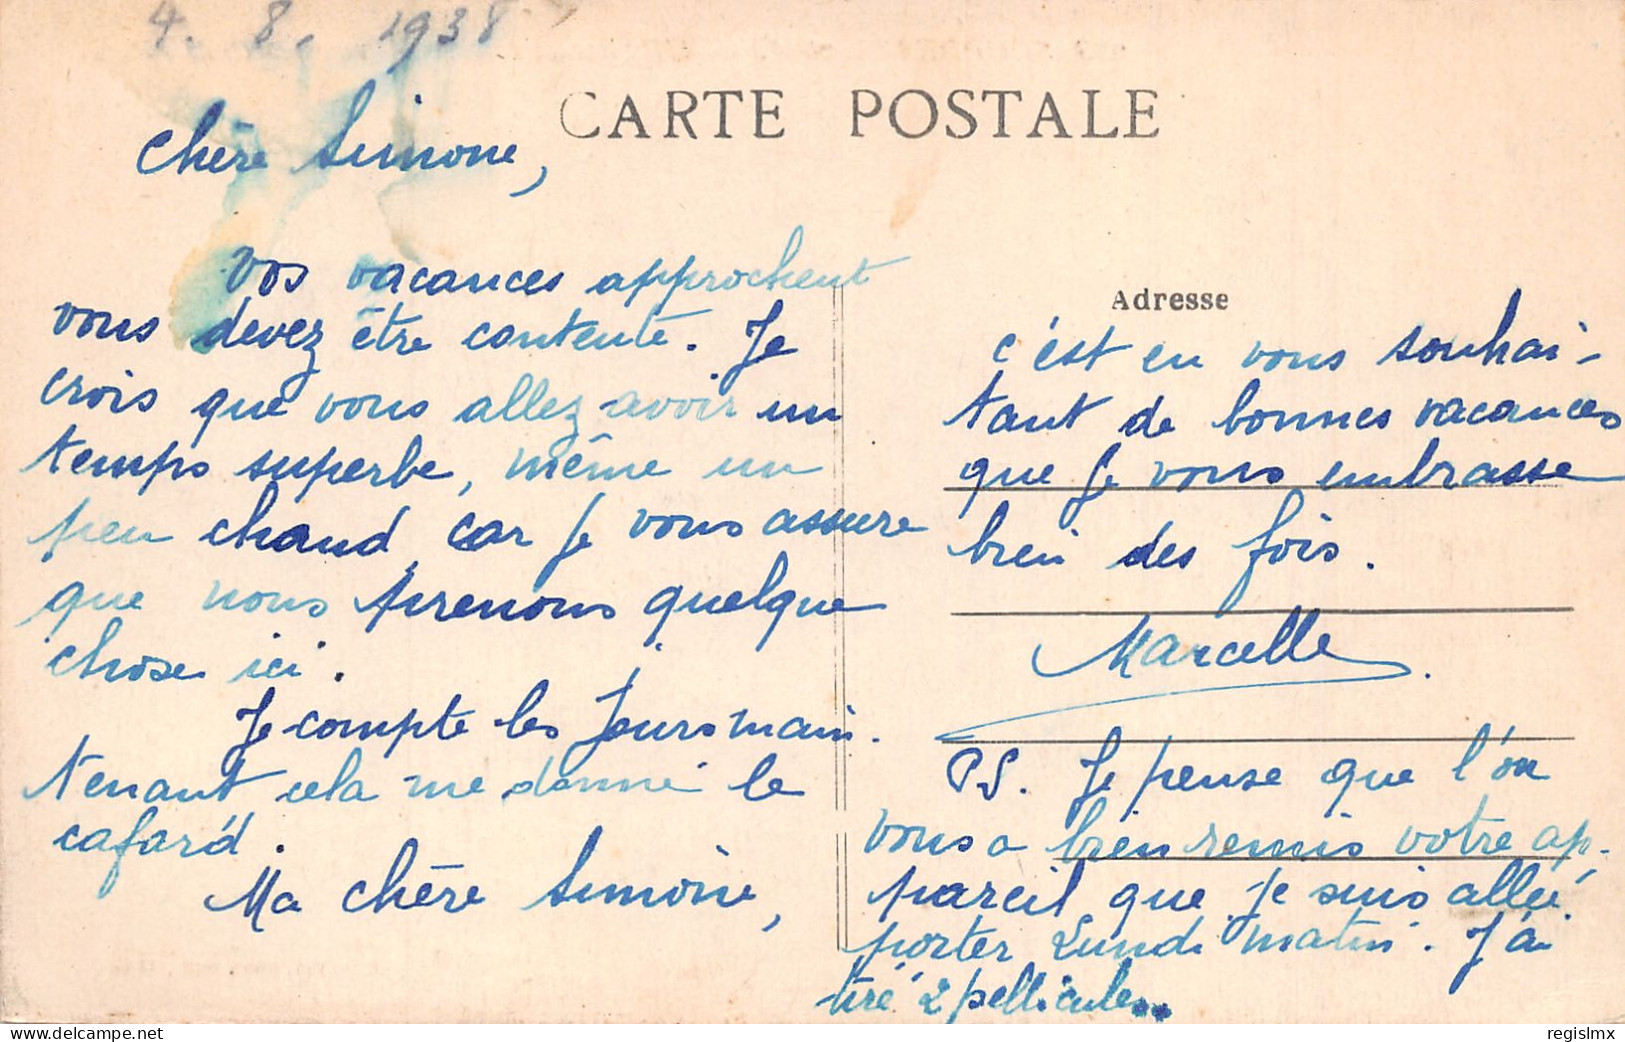 4. 8. 1938
CARTE POSTALE
Chère Simone,
Vos vacances approchent
vous devez être contente. Je
crois que vous allez avoir un
temps superbe, même un
peu chaud, car je vous assure
que nous prenons quelque
chose ici.
Je compte les jours main.
tenant cela me donne le
cafard.
Ma chère Simone,
Adresse
c'est en vous souhai-
tant de bonnes vacances
que je vous embrasse
bien des fois.
Marcelle.
PS. Je pense que l'on
vous a bien remis votre ap-
pareil que je suis allée
porter Lundi matin. J'ai
tiré 2 pellicules..
http://www.delcampe.net
regislmx